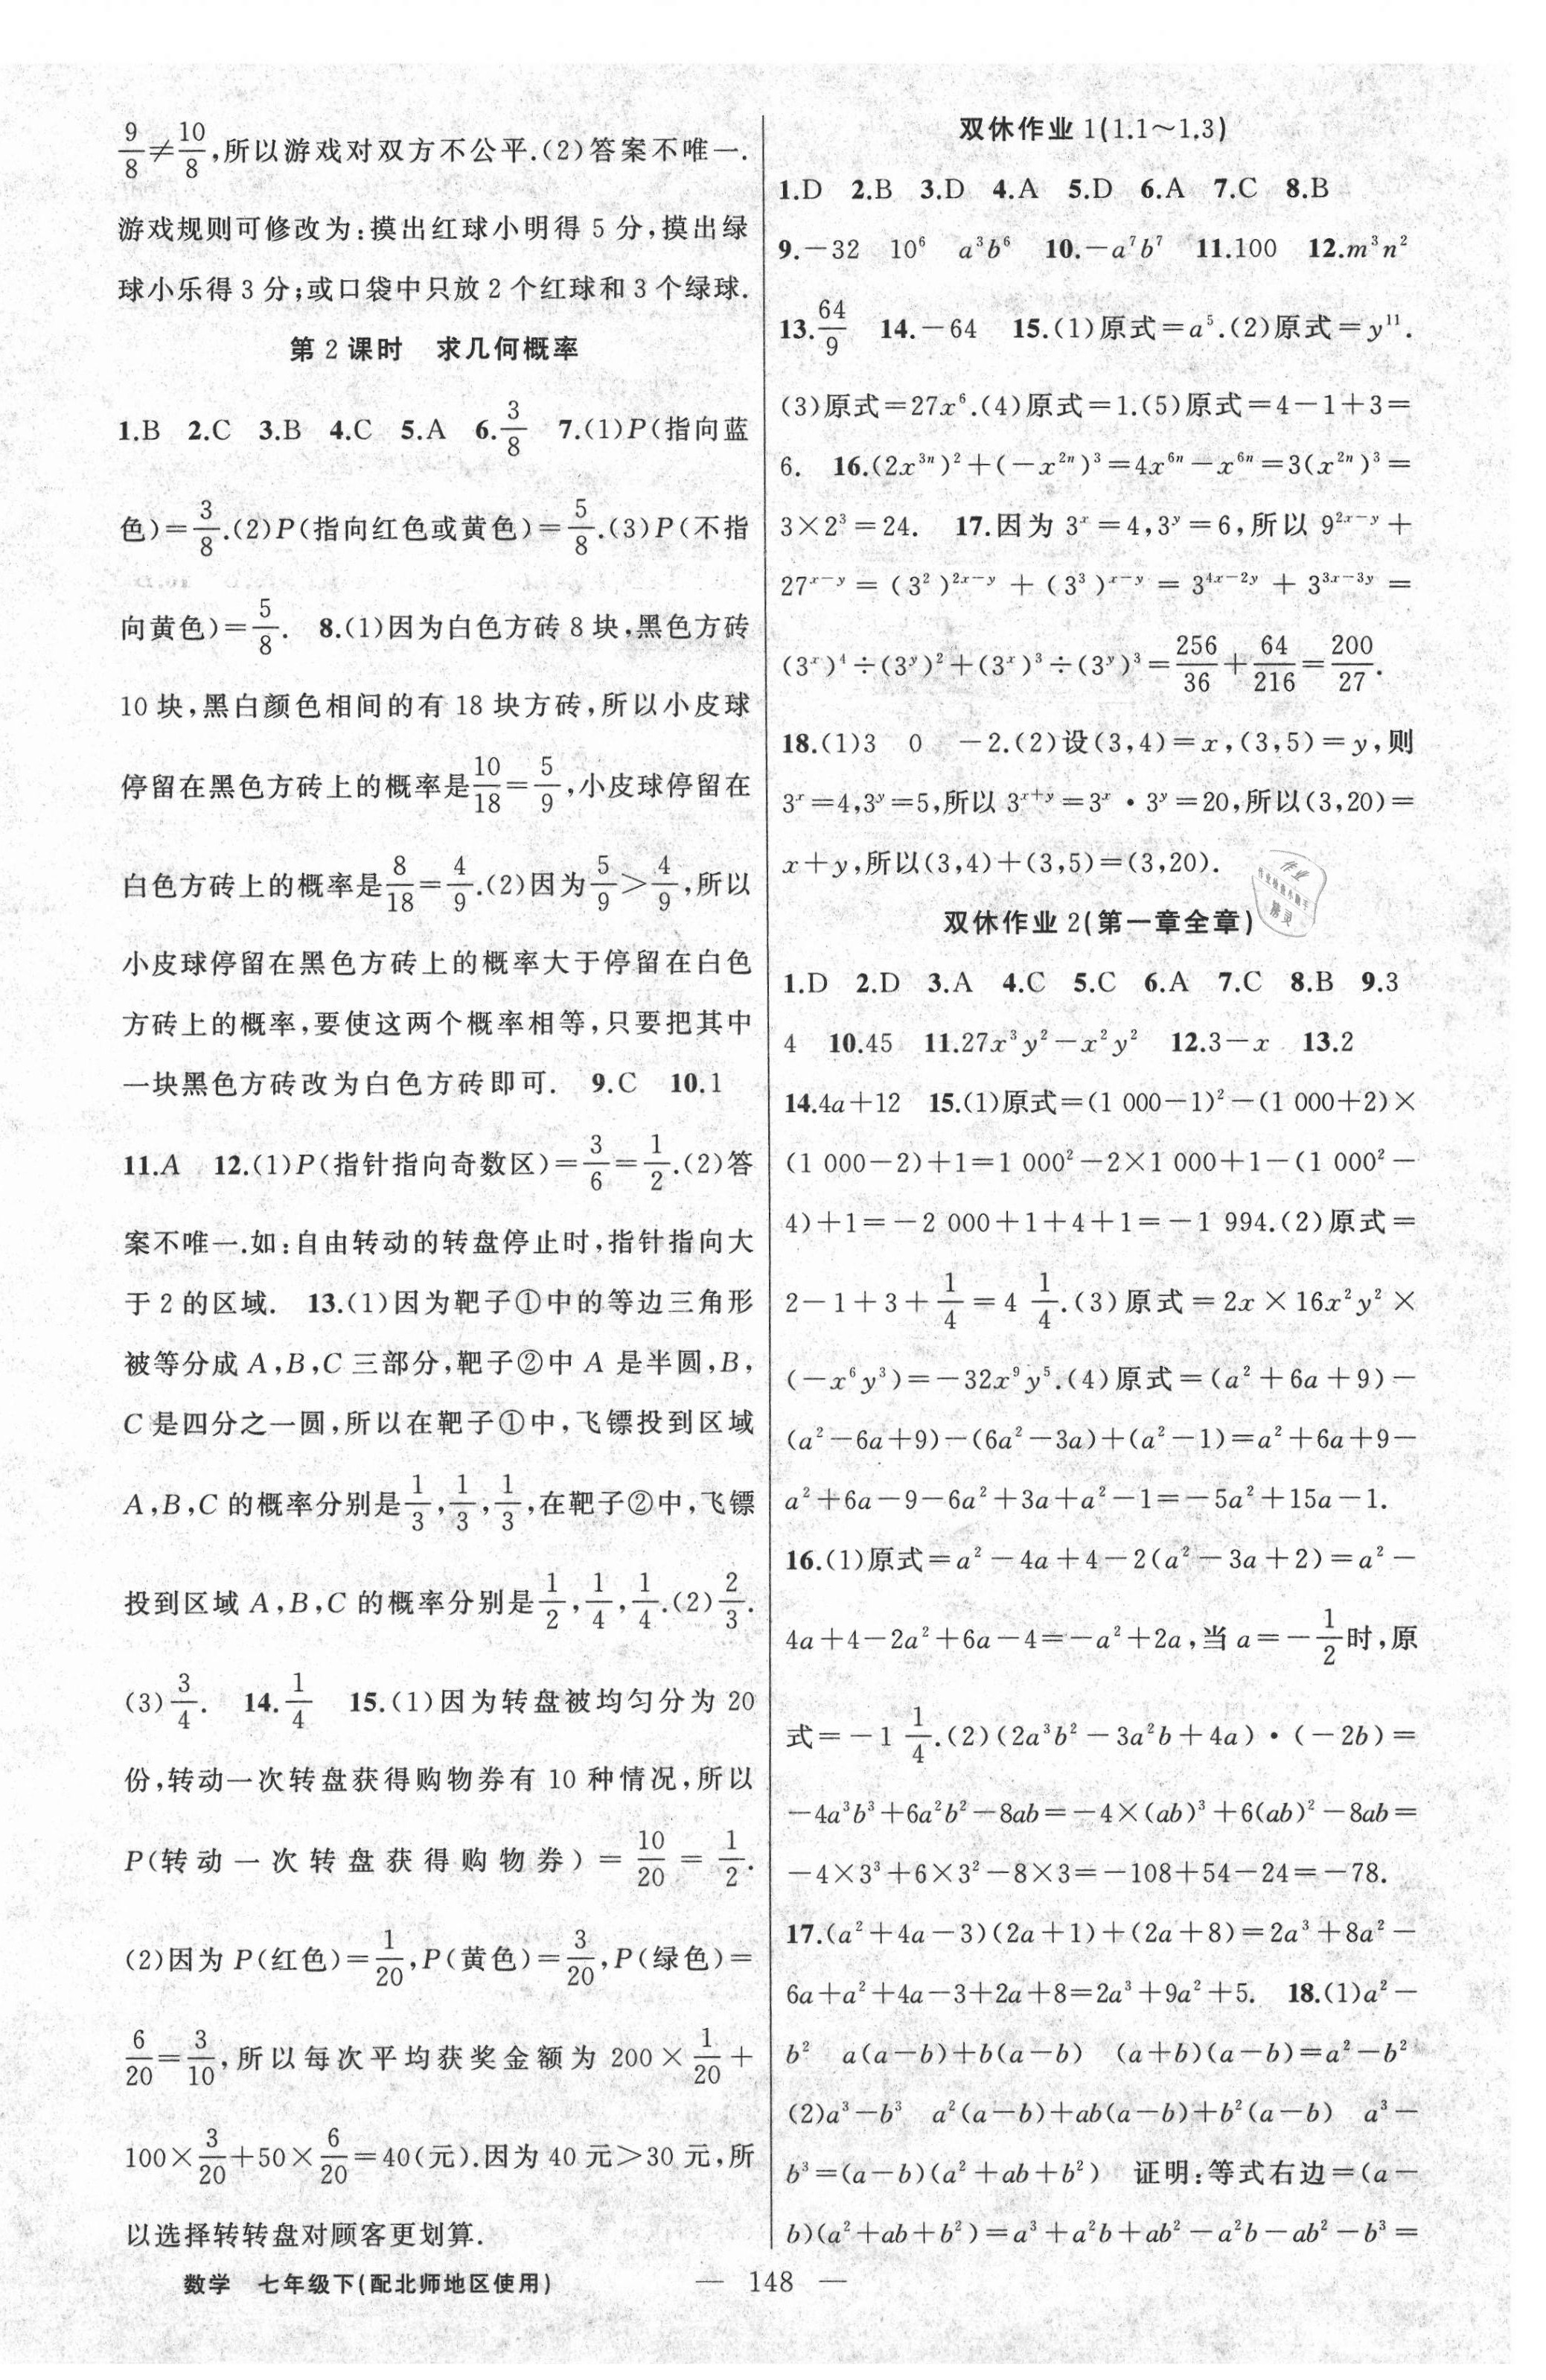 9/8≠10/8,所以游戏对双方不公平.(2)答案不唯一.
游戏规则可修改为:摸出红球小明得 5 分,摸出绿
球小乐得 3 分;或口袋中只放 2 个红球和 3 个绿球.
第 2 课时　求几何概率
1.B　2.C　3.B　4.C　5.A　6.3/8　7.(1)P(指向蓝
色)=3/8.(2)P(指向红色或黄色)=5/8.(3)P(不指
向黄色)=5/8.　8.(1)因为白色方砖 8 块,黑色方砖
10 块,黑白颜色相间的有 18 块方砖,所以小皮球
停留在黑色方砖上的概率是10/18=5/9,小皮球停留在
白色方砖上的概率是8/18=4/9.(2)因为5/9>4/9,所以
小皮球停留在黑色方砖上的概率大于停留在白色
方砖上的概率,要使这两个概率相等,只要把其中
一块黑色方砖改为白色方砖即可.　9.C　10.1
11.A　12.(1)P(指针指向奇数区)=3/6=1/2.(2)答
案不唯一.如:自由转动的转盘停止时,指针指向大
于 2 的区域.　13.(1)因为靶子①中的等边三角形
被等分成 A,B,C 三部分,靶子②中 A 是半圆,B,
C 是四分之一圆,所以在靶子①中,飞镖投到区域
A,B,C 的概率分别是1/3,1/3,1/3,在靶子②中,飞镖
投到区域 A,B,C 的概率分别是1/2,1/4,1/4.(2)2/3.
(3)3/4.　14.1/4　15.(1)因为转盘被均匀分为 20
份,转动一次转盘获得购物券有 10 种情况,所以
P(转动一次转盘获得购物券)=10/20=1/2.
(2)因为 P(红色)=1/20,P(黄色)=3/20,P(绿色)=
6/20=3/10,所以每次平均获奖金额为 200×1/20+
100×3/20+50×6/20=40(元).因为 40 元>30 元,所
以选择转转盘对顾客更划算.
双休作业 1(1.1～1.3)
1.D　2.B　3.D　4.A　5.D　6.A　7.C　8.B
9.−32　10⁶　a³b⁶　10.−a⁷b⁷　11.100　12.m³n²
13.64/9　14.−64　15.(1)原式=a⁵.(2)原式=y¹¹.
(3)原式=27x⁶.(4)原式=1.(5)原式=4−1+3=
6.　16.(2x³ⁿ)²+(−x²ⁿ)³=4x⁶ⁿ−x⁶ⁿ=3(x²ⁿ)³=
3×2³=24.　17.因为 3ˣ=4,3ʸ=6,所以 9²ˣ⁻ʸ+
27ˣ⁻ʸ=(3²)²ˣ⁻ʸ+(3³)ˣ⁻ʸ=3⁴ˣ⁻²ʸ+3³ˣ⁻³ʸ=
(3ˣ)⁴÷(3ʸ)²+(3ˣ)³÷(3ʸ)³=256/36+64/216=200/27.
18.(1)3　0　−2.(2)设(3,4)=x,(3,5)=y,则
3ˣ=4,3ʸ=5,所以 3ˣ⁺ʸ=3ˣ·3ʸ=20,所以(3,20)=
x+y,所以(3,4)+(3,5)=(3,20).
双休作业 2(第一章全章)
1.D　2.D　3.A　4.C　5.C　6.A　7.C　8.B　9.3
4　10.45　11.27x³y²−x²y²　12.3−x　13.2
14.4a+12　15.(1)原式=(1 000−1)²−(1 000+2)×
(1 000−2)+1=1 000²−2×1 000+1−(1 000²−
4)+1=−2 000+1+4+1=−1 994.(2)原式=
2−1+3+1/4=4 1/4.(3)原式=2x×16x²y²×
(−x⁶y³)=−32x⁹y⁵.(4)原式=(a²+6a+9)−
(a²−6a+9)−(6a²−3a)+(a²−1)=a²+6a+9−
a²+6a−9−6a²+3a+a²−1=−5a²+15a−1.
16.(1)原式=a²−4a+4−2(a²−3a+2)=a²−
4a+4−2a²+6a−4=−a²+2a,当 a=−1/2时,原
式=−1 1/4.(2)(2a³b²−3a²b+4a)·(−2b)=
−4a³b³+6a²b²−8ab=−4×(ab)³+6(ab)²−8ab=
−4×3³+6×3²−8×3=−108+54−24=−78.
17.(a²+4a−3)(2a+1)+(2a+8)=2a³+8a²−
6a+a²+4a−3+2a+8=2a³+9a²+5.　18.(1)a²−
b²　a(a−b)+b(a−b)　(a+b)(a−b)=a²−b²
(2)a³−b³　a²(a−b)+ab(a−b)+b²(a−b)　a³−
b³=(a−b)(a²+ab+b²)　证明:等式右边=(a−
b)(a²+ab+b²)=a³+a²b+ab²−a²b−ab²−b³=
数学　七年级下(配北师地区使用)
— 148 —